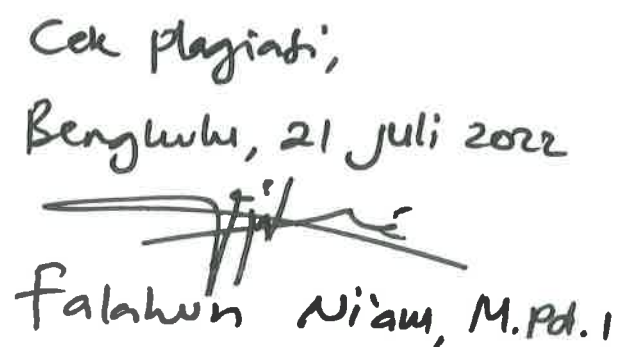 Cek plagiasi,
Bengkulu, 21 Juli 2022
Falahun Ni'am, M.Pd.I